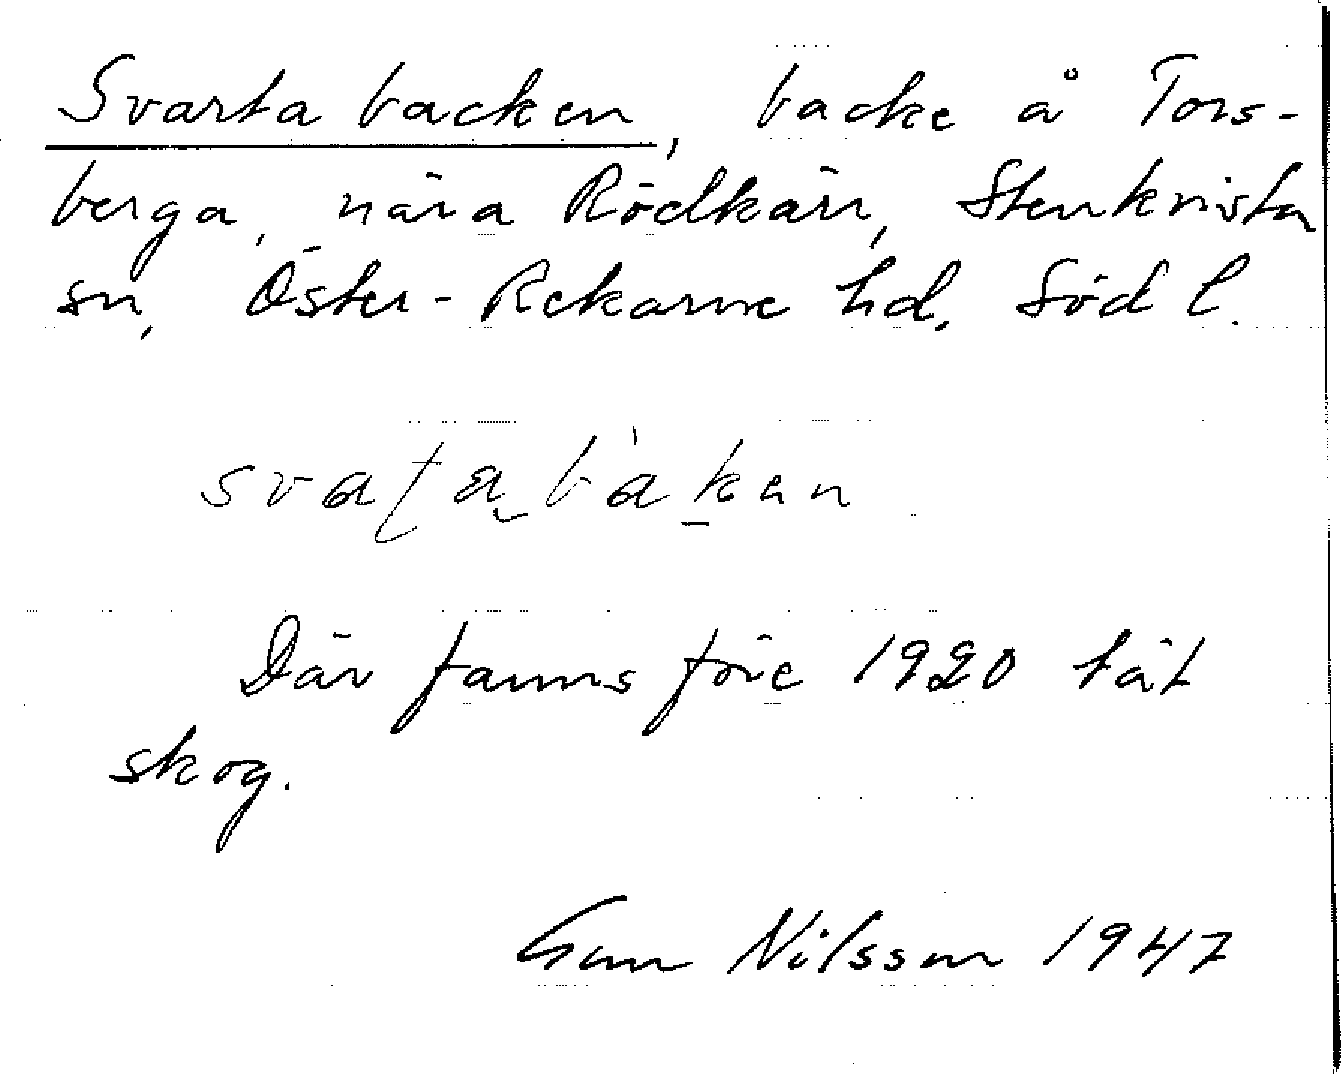 Svarta backen, backe å Tors-
berga, nära Rödkärr, Stenkvista
sn, Öster-Rekarne hd, Söd l.
svaʈa bàkan
Där fanns före 1920 tät
skog.
Gun Nilsson 1947